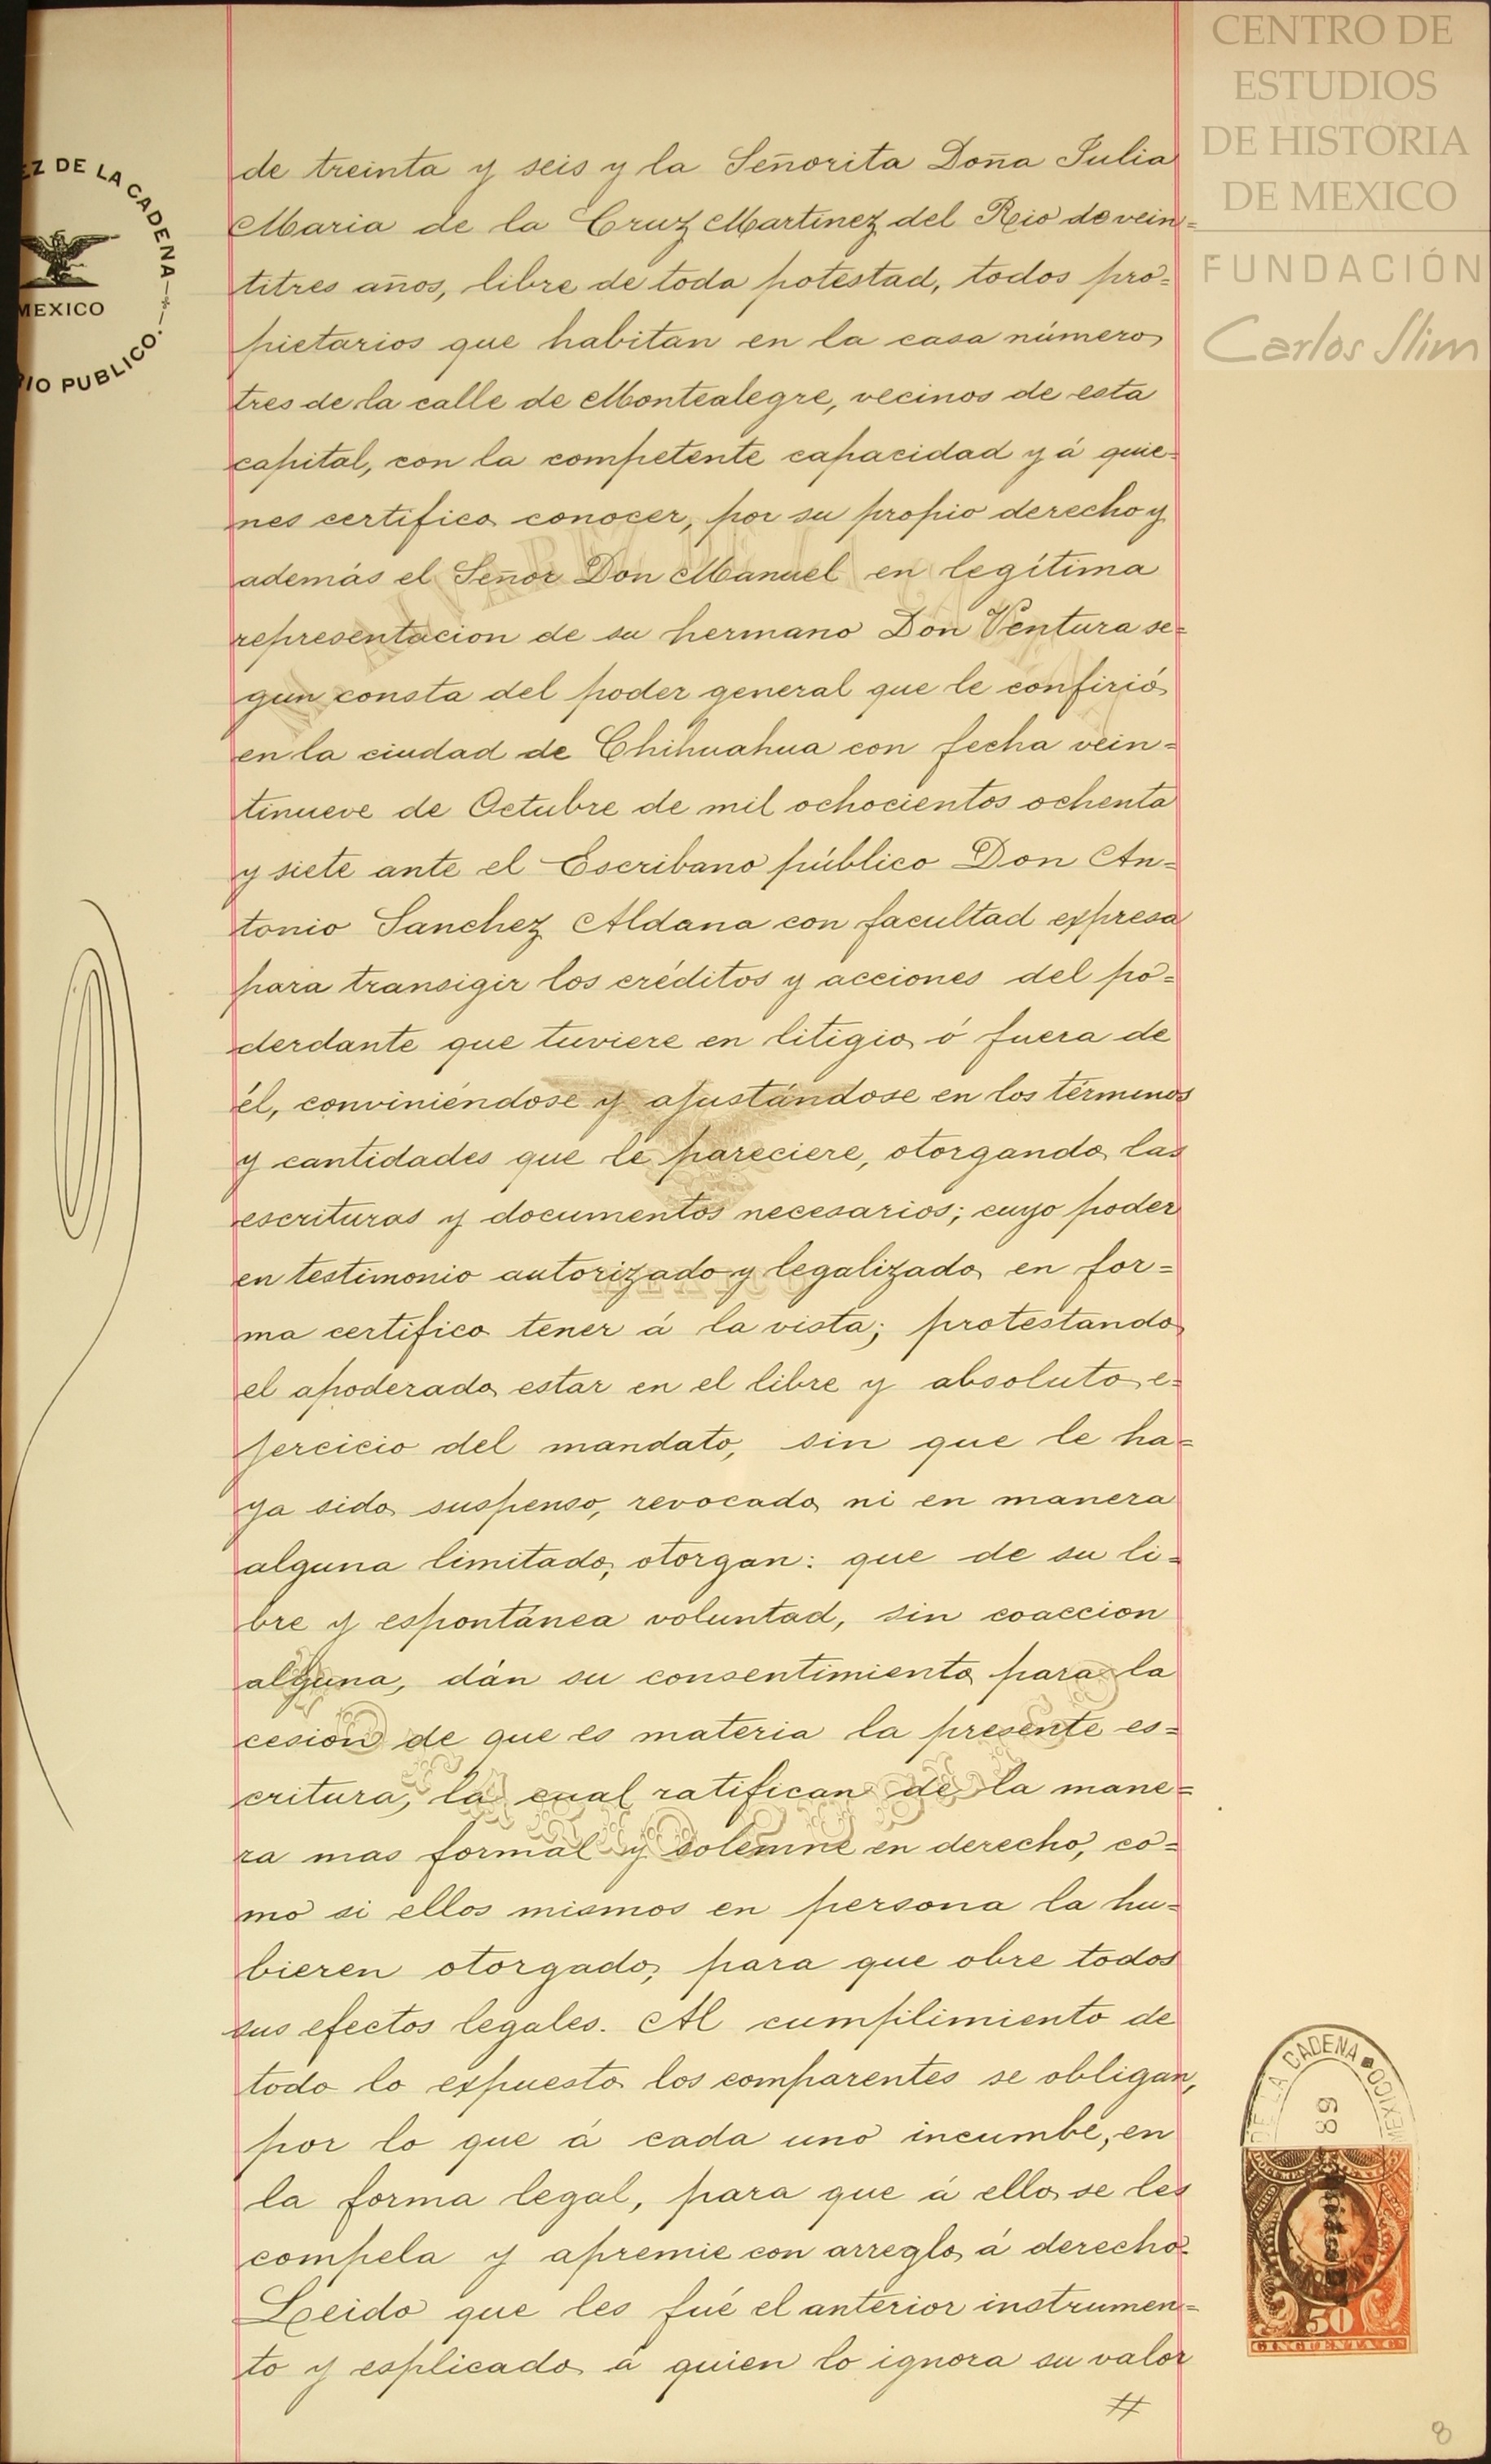 CENTRO DE
ESTUDIOS
DE HISTORIA
DE MEXICO
FUNDACIÓN
Carlos Slim
EZ DE LA CADENA
MEXICO
IO PUBLICO.
de treinta y seis y la Señorita Doña Julia
Maria de la Cruz Martinez del Rio de vein=
titres años, libre de toda potestad, todos pro=
pietarios que habitan en la casa número
tres de la calle de Montealegre, vecinos de esta
capital, con la competente capacidad y á quie=
nes certifico conocer, por su propio derecho y
además el Señor Don Manuel en legítima
representacion de su hermano Don Ventura se=
gun consta del poder general que le confirió
en la ciudad de Chihuahua con fecha vein=
tinueve de Octubre de mil ochocientos ochenta
y siete ante el Escribano público Don An=
tonio Sanchez Aldana con facultad expresa
para transigir los créditos y acciones del po=
derdante que tuviere en litigio ó fuera de
él, conviniéndose y ajustándose en los términos
y cantidades que le pareciere, otorgando las
escrituras y documentos necesarios; cuyo poder
en testimonio autorizado y legalizado en for=
ma certifico tener á la vista; protestando
el apoderado estar en el libre y absoluto e=
jercicio del mandato, sin que le ha=
ya sido suspenso, revocado ni en manera
alguna limitado, otorgan: que de su li=
bre y espontánea voluntad, sin coaccion
alguna, dán su consentimiento para la
cesion de que es materia la presente es=
critura, la cual ratifican de la mane=
ra mas formal y solemne en derecho, co=
mo si ellos mismos en persona la hu=
bieren otorgado, para que obre todos
sus efectos legales. Al cumplimiento de
todo lo expuesto los comparentes se obligan,
por lo que á cada uno incumbe, en
la forma legal, para que á ello se les
compela y apremie con arreglo á derecho.
Leido que les fué el anterior instrumen=
to y esplicado á quien lo ignora su valor
#
DE LA CADENA MEXICO
68
50
CINCUENTA CS
8